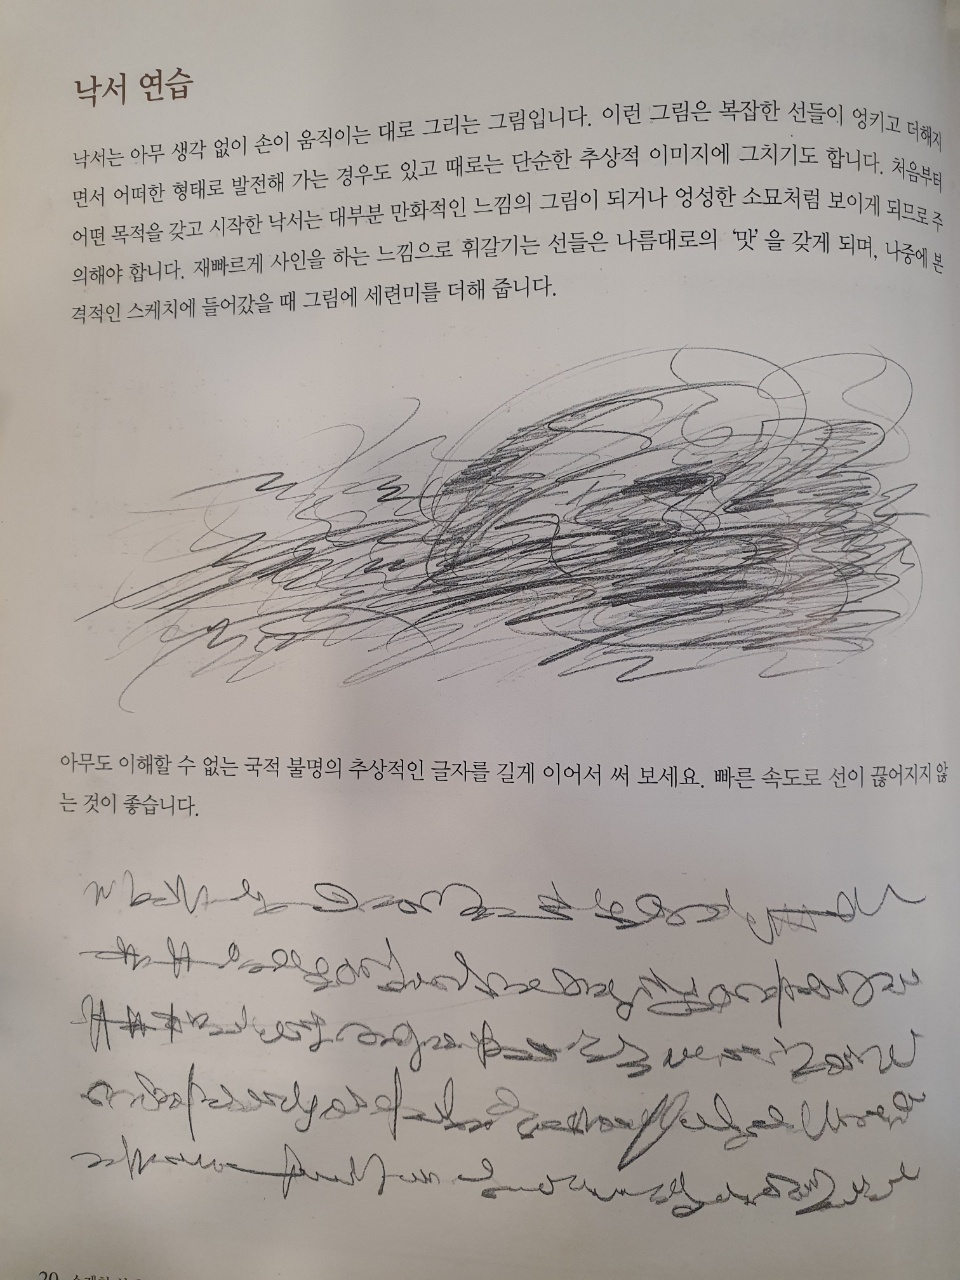 낙서 연습
낙서는 아무 생각 없이 손이 움직이는 대로 그리는 그림입니다. 이런 그림은 복잡한 선들이 엉키고 더해지
면서 어떠한 형태로 발전해 가는 경우도 있고 때로는 단순한 추상적 이미지에 그치기도 합니다. 처음부터
어떤 목적을 갖고 시작한 낙서는 대부분 만화적인 느낌의 그림이 되거나 엉성한 소묘처럼 보이게 되므로 주
의해야 합니다. 재빠르게 사인을 하는 느낌으로 휘갈기는 선들은 나름대로의 '맛'을 갖게 되며, 나중에 본
격적인 스케치에 들어갔을 때 그림에 세련미를 더해 줍니다.
아무도 이해할 수 없는 국적 불명의 추상적인 글자를 길게 이어서 써 보세요. 빠른 속도로 선이 끊어지지 않
는 것이 좋습니다.
20